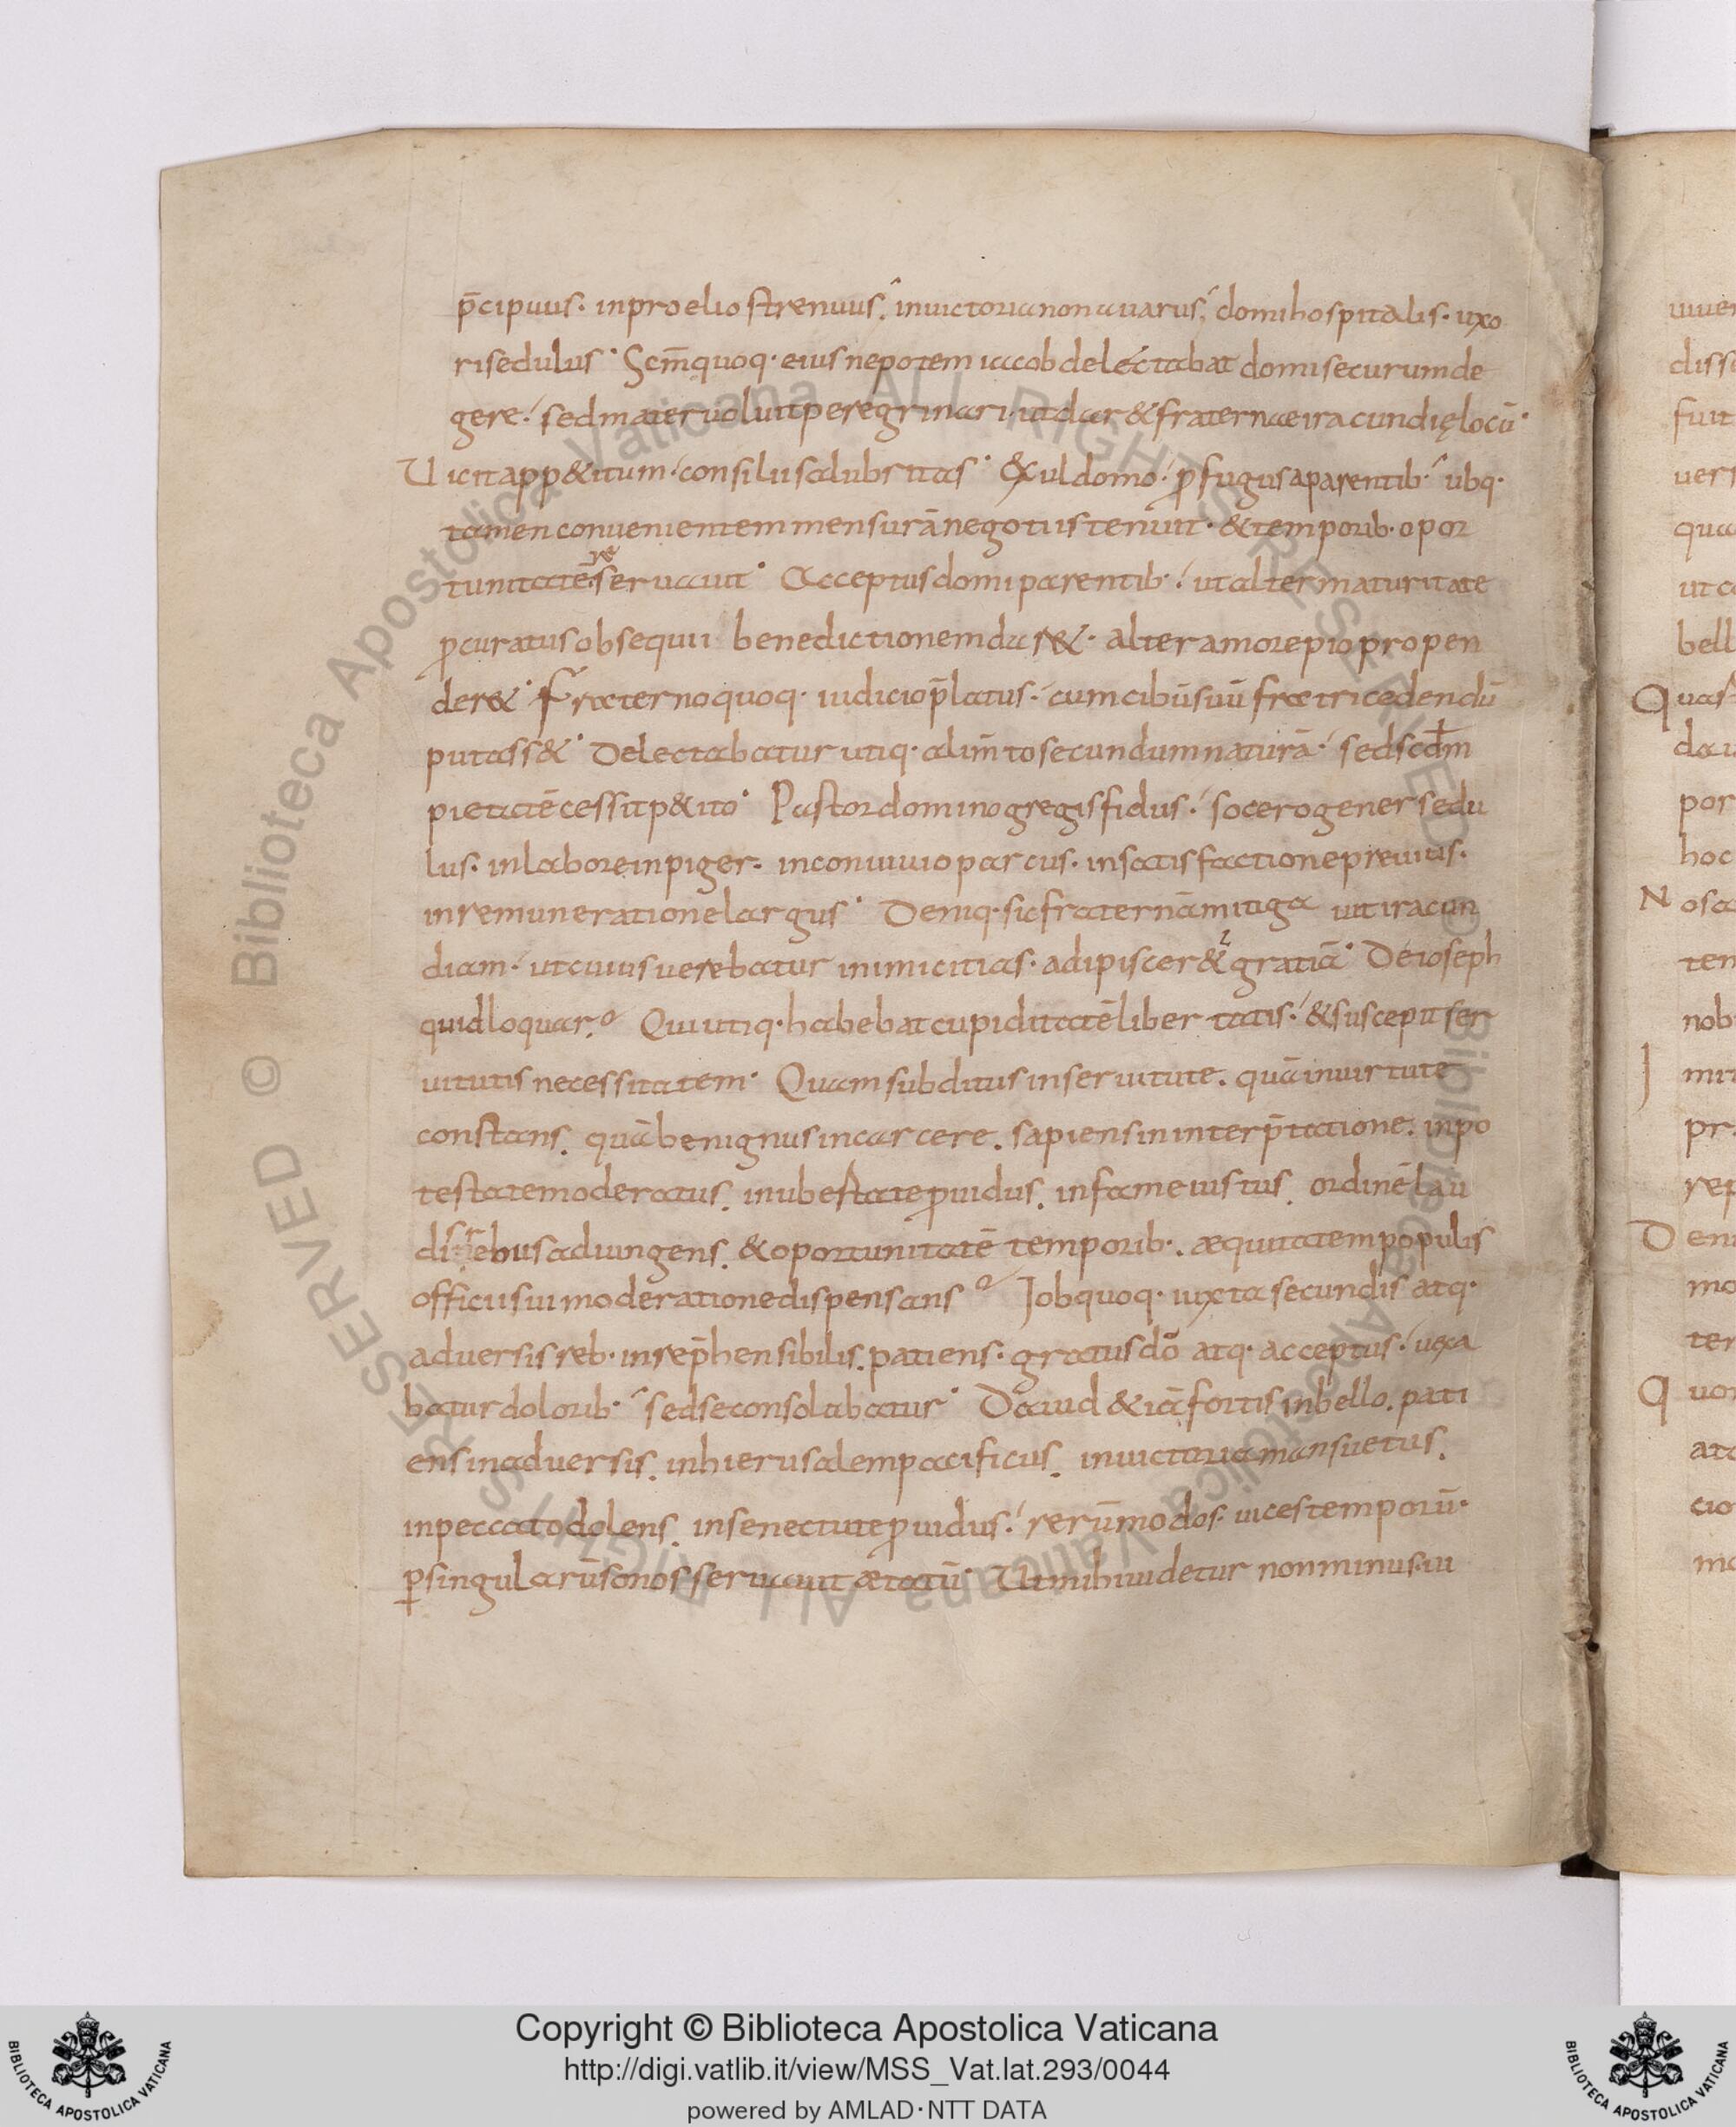 p̄cipuus· in proelio strenuus, in uictoria non auarus, domi hospitalis· uxo
ri sedulus· Scm̄ quoq· eius nepotem iacob delectabat domi securum de
gere· sed mater uoluit peregrinari· ut dar& fraternae iracundię locū·
Uicit app&itum· consilii salubritas· Exul domo· ꝓfugus a parentib· ubq·
tamen conuenientem mensurā negotiis tenuit· & temporib· opor
tunitatē reseruauit· Acceptus domi parentib·· ut alter maturitate
ꝓcuratus obsequii benedictionem dar&· alter amore pio propen
der&· Fraterno quoq· iudicio p̄latus· cum cibū suū fratri cedendū
putass&· Delectabatur utiq· alim̄to secundum naturā· sed scdm̄
pietatē cessit p&ito· Pastor domino gregis fidus· socero gener sedu
lus· in labore inpiger· in conuiuio parcus· in satisfactione preuius·
in remuneratione largus· Deniq· sic fraternā mitigauit iracun
diam· ut cuius uerebatur inimicitias· adipiscer& gratiā· De ioseph
quid loquar· Qui utiq· habebat cupiditatē libertatis· & suscepit ser
uitutis necessitatem· Quam subditus in seruitute· quā in uirtute
constans· quā benignus in carcere· sapiens in interp̄tatione· in po
testate moderatus· in ubestate ꝓuidus· in fame iustus· ordinē lau
dis rebus adiungens· & oportunitatē temporib·· æquitatem populis
officii sui moderatione dispensans· Iob quoq· iuxta secundis atq·
aduersis reb· inrep̄hensibilis· patiens· gratus dō atq· acceptus· uexa
batur dolorib· sed se consolabatur· Dauid &iā fortis in bello· pati
ens in aduersis· in hierusalem pacificus· in uictoria mansuetus·
in peccato dolens· in senectute ꝓuidus· rerū modos· uices temporū·
ꝑ singularū sonos seruauit ætatū· Ut mihi uidetur non minus· iu
uiuen
disse
fuit
uers
qua
ut co
bell
Quas
da u
por
hoc
Nosa
ten
nob
I mit
pr
rep
Deni
mo
ter
Quon
ata
cio
mo
© Biblioteca Apostolica Vaticana ALL RIGHTS RESERVED
© Biblioteca Apostolica Vaticana ALL RIGHTS RESERVED
BIBLIOTECA APOSTOLICA VATICANA
Copyright © Biblioteca Apostolica Vaticana
http://digi.vatlib.it/view/MSS_Vat.lat.293/0044
powered by AMLAD·NTT DATA
BIBLIOTECA APOSTOLICA VATICANA